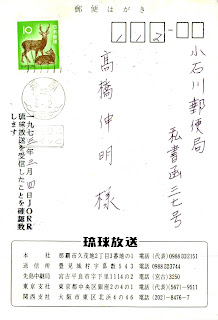 郵便はがき
10
112
小石川郵便局
私書函三七号
高橋伸明様
一九七三年三月四日JORR
琉球放送を受信したことを確認致
します
琉球放送
本社 那覇市久茂地2丁目3番地の1 電話(代表)0988 332151
送信所 豊見城村字高嶺543 電話 0988 323744
電話(宮古)3250
東京支社 東京都中央区銀座2の4の1 電話(代表)(567)-9511
関西支社 大阪市東区北浜4の46 電話 (2021)-8476-7